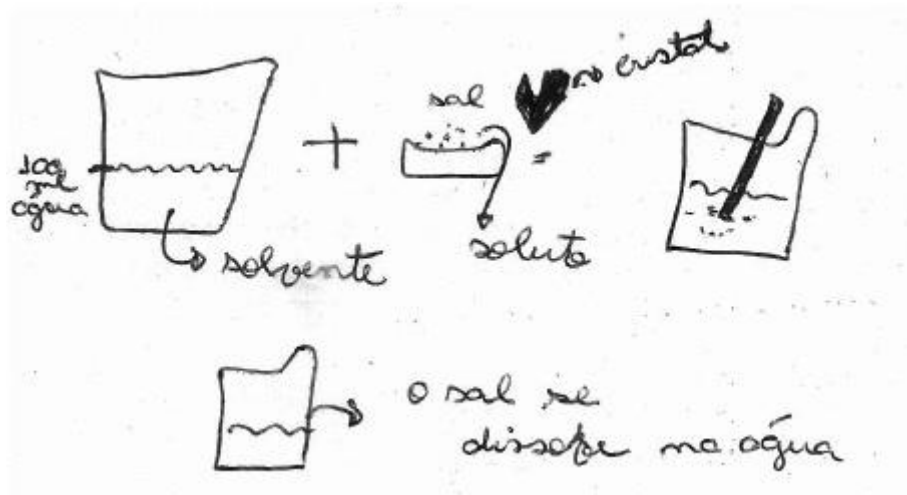 100
ml
água
solvente
+
sal
no cristal
=
soluto
o sal se
dissolve na água